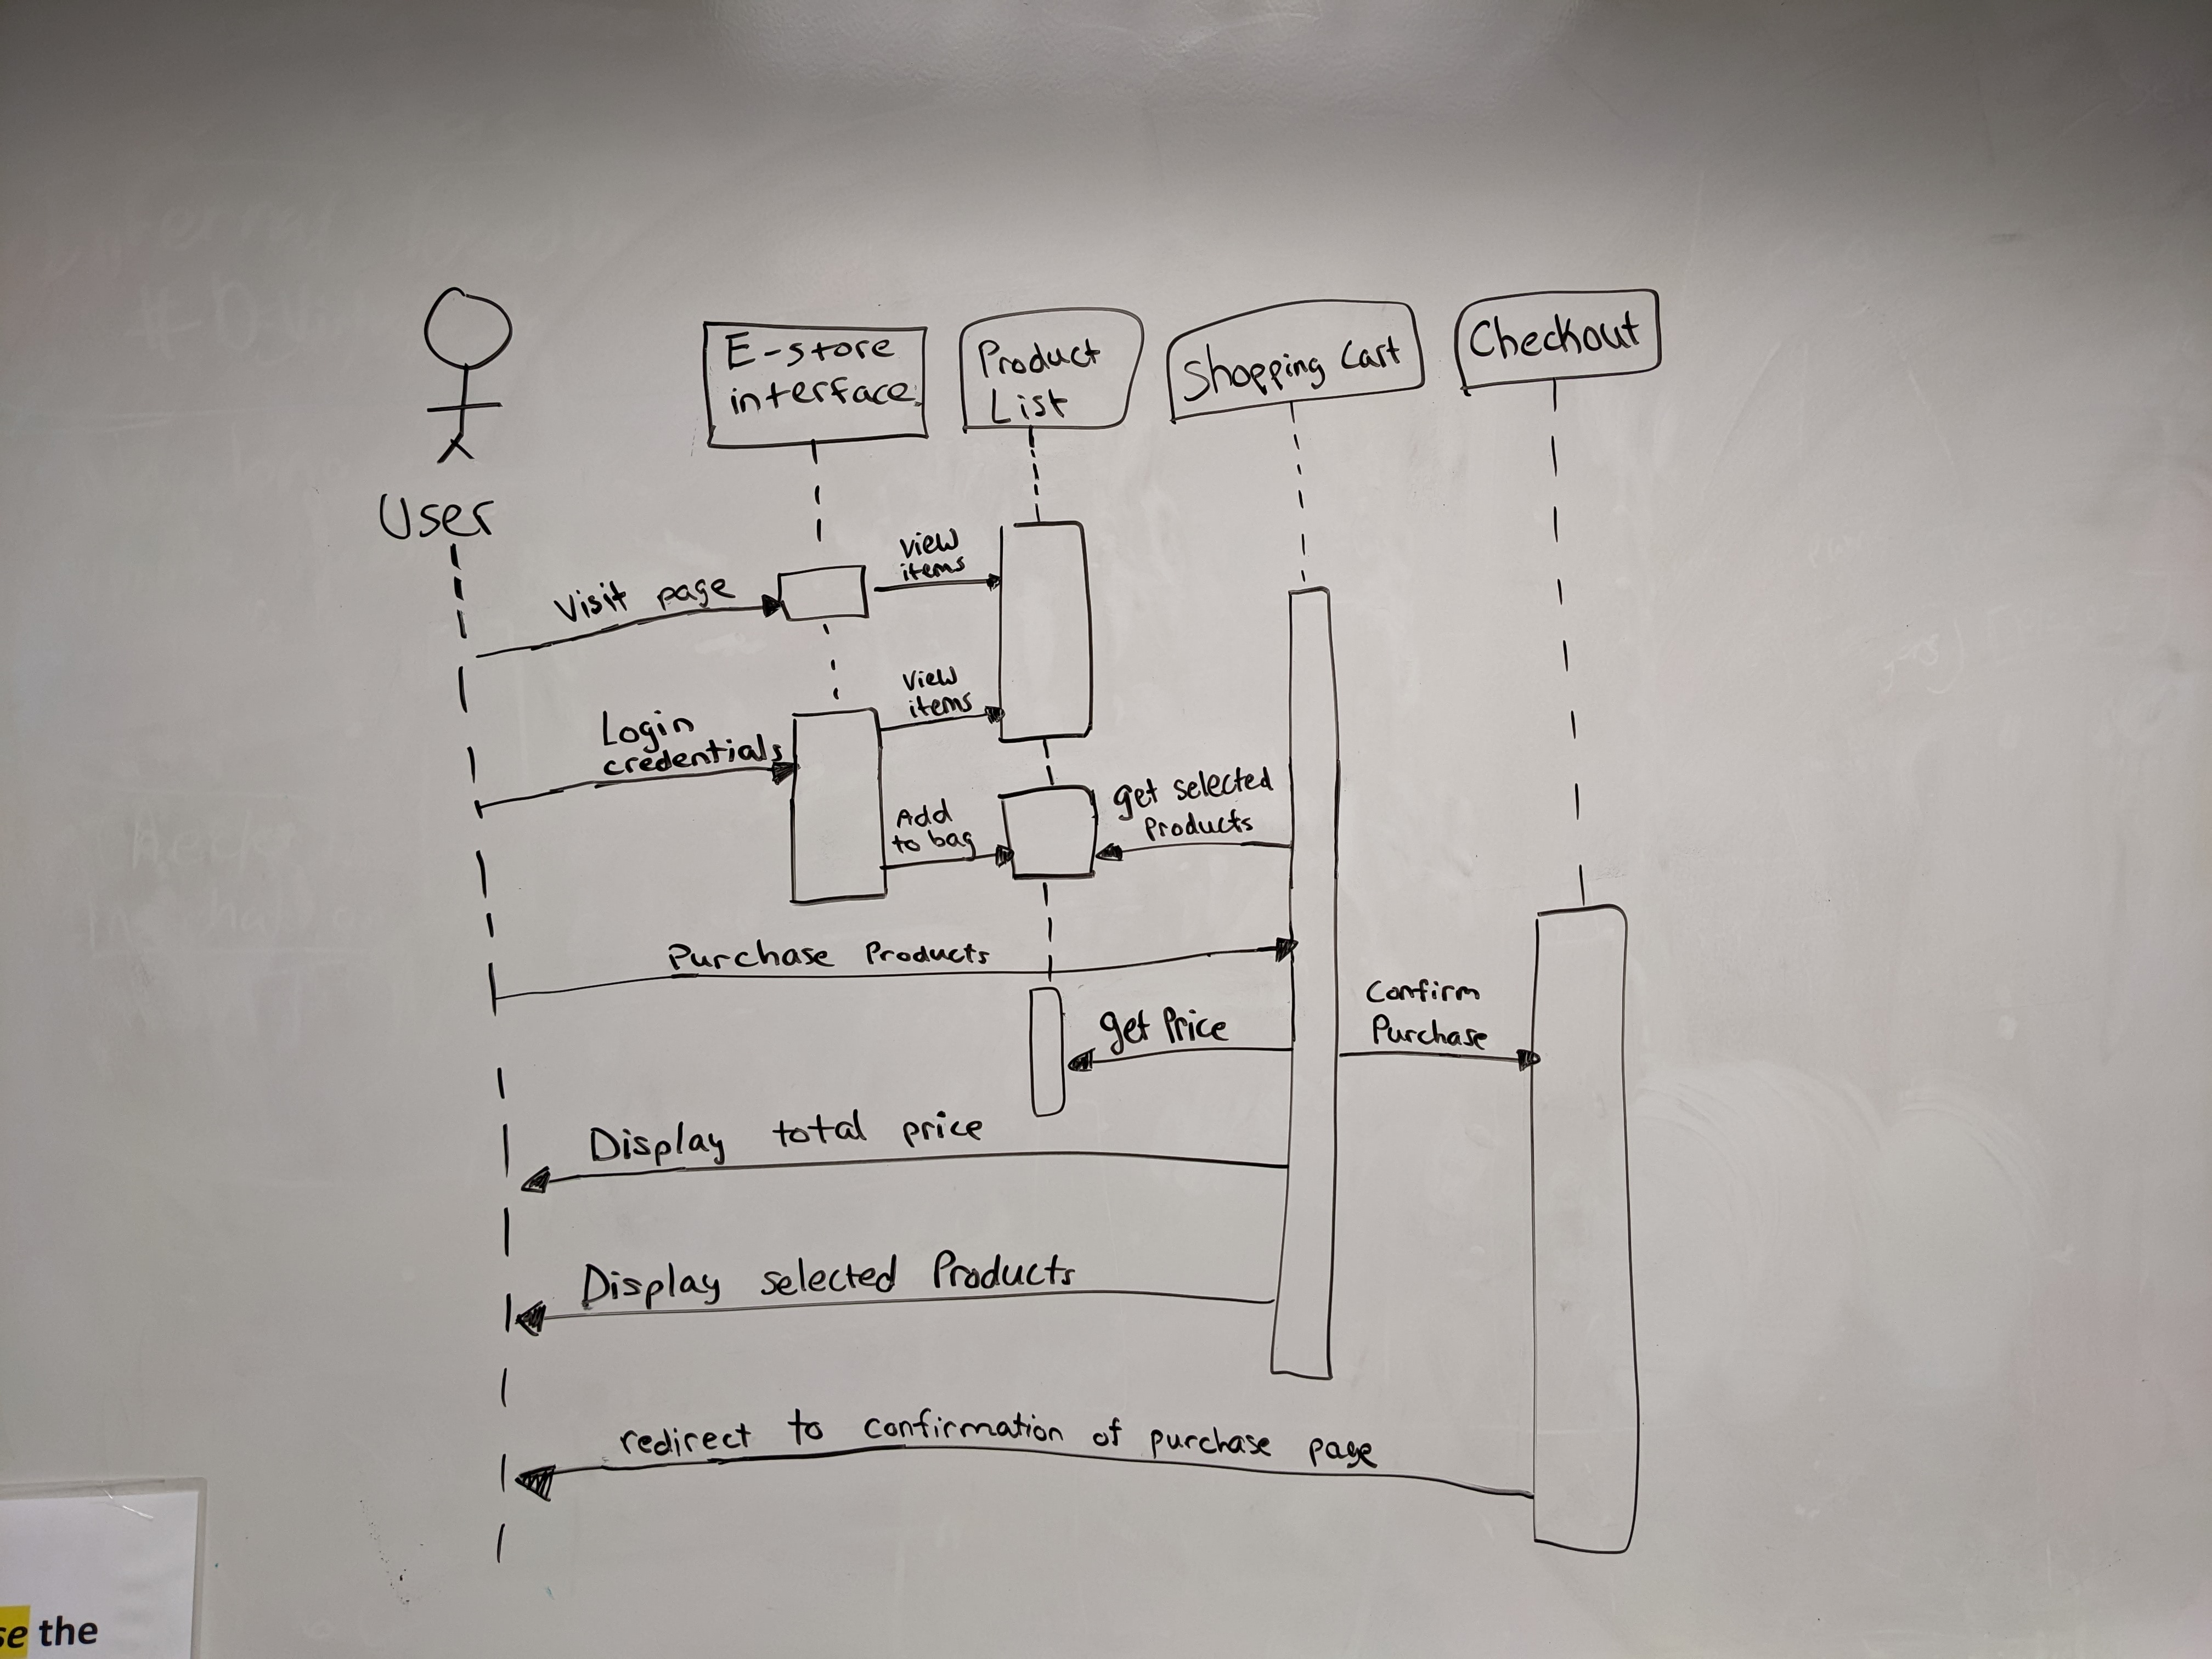 E-store
interface
Product
List
Shopping Cart
Checkout
User
Visit page
View
items
Login
credentials
View
items
Add
to bag
get selected
Products
Purchase Products
get Price
Confirm
Purchase
Display total price
Display selected Products
redirect to confirmation of purchase page
se the